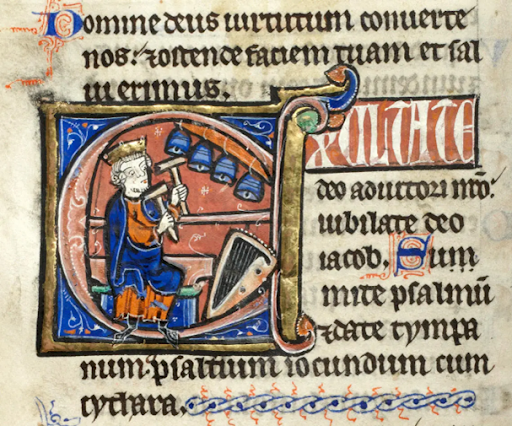 Domine deus uirtutum conuerte
nos: ⁊ ostende faciem tuam et sal
ui erimus.
EXULTATE
deo adiutori nr̄o:
iubilate deo
iacob. Sum
mite psalmū
⁊ date tympa
num: psaltium iocundum cum
cythara.